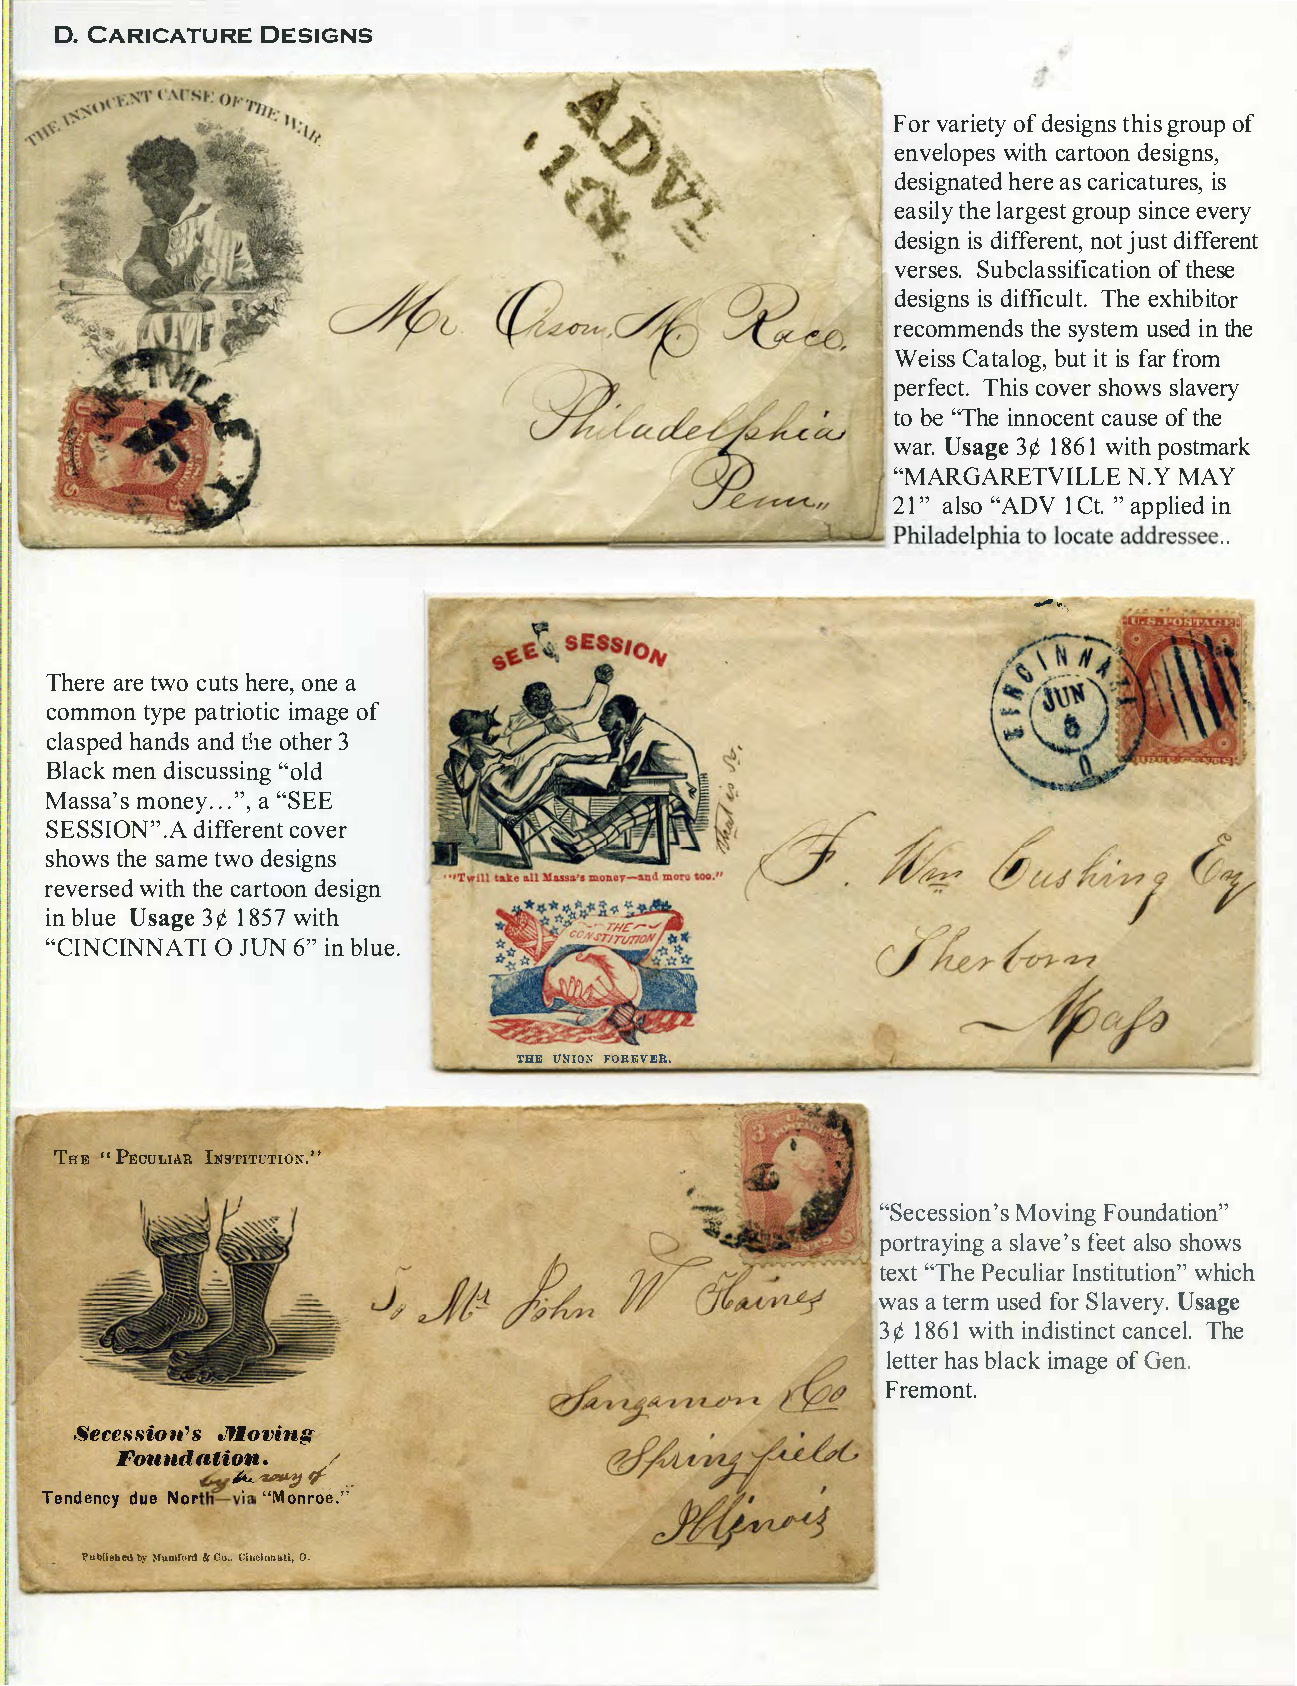 D. CARICATURE DESIGNS
THE INNOCENT CAUSE OF THE WAR.
ADV.
1
Mr. Orson M. Race.
Philadelphia
Penn,,
For variety of designs this group of
envelopes with cartoon designs,
designated here as caricatures, is
easily the largest group since every
design is different, not just different
verses. Subclassification of these
designs is difficult. The exhibitor
recommends the system used in the
Weiss Catalog, but it is far from
perfect. This cover shows slavery
to be “The innocent cause of the
war. Usage 3¢ 1861 with postmark
“MARGARETVILLE N.Y MAY
21” also “ADV 1Ct. ” applied in
Philadelphia to locate addressee..
There are two cuts here, one a
common type patriotic image of
clasped hands and the other 3
Black men discussing “old
Massa’s money…”, a “SEE
SESSION”.A different cover
shows the same two designs
reversed with the cartoon design
in blue Usage 3¢ 1857 with
“CINCINNATI O JUN 6” in blue.
SEE SESSION
that is so.
"'Twill take all Massa's money—and more too."
THE
CONSTITUTION
THE UNION FOREVER.
CINCINNATI
JUN
6
O
U.S. POSTAGE
THREE CENTS
F. Wm Cushing Esq
Sherborn
Mass
THE "PECULIAR INSTITUTION."
Secession's Moving
Foundation.
by the way of
Tendency due North—via "Monroe."
Published by Mumford & Co., Cincinnati, O.
3
To Mr John W Haines
Sangamon Co
Springfield
Illinois
“Secession’s Moving Foundation”
portraying a slave’s feet also shows
text “The Peculiar Institution” which
was a term used for Slavery. Usage
3¢ 1861 with indistinct cancel. The
letter has black image of Gen.
Fremont.